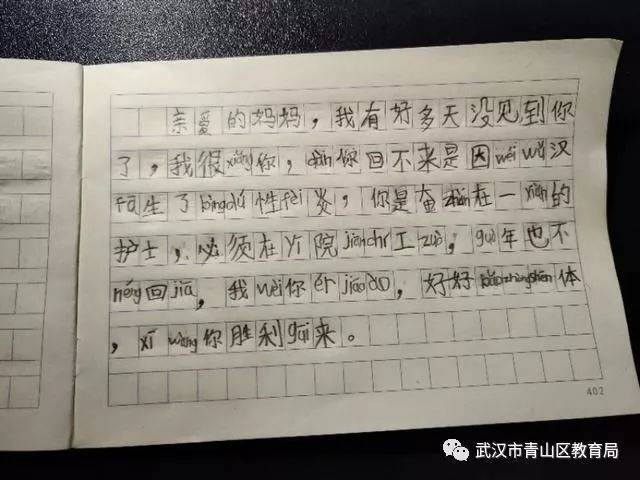 亲爱的妈妈，我有好多天没见到你
了，我很xiǎng你，dàn你回不来是因wéi wǔ汉
fā生了bìngdú性fèi炎，你是奋zhàn在一xiàn的
护士，必须在yī院jiānchí工zuò，guò年也不
néng回jiā，我wèi你ér jiāo ào，好好bǎozhòngshēn体
，xī wàng你胜利guī来。
402
武汉市青山区教育局